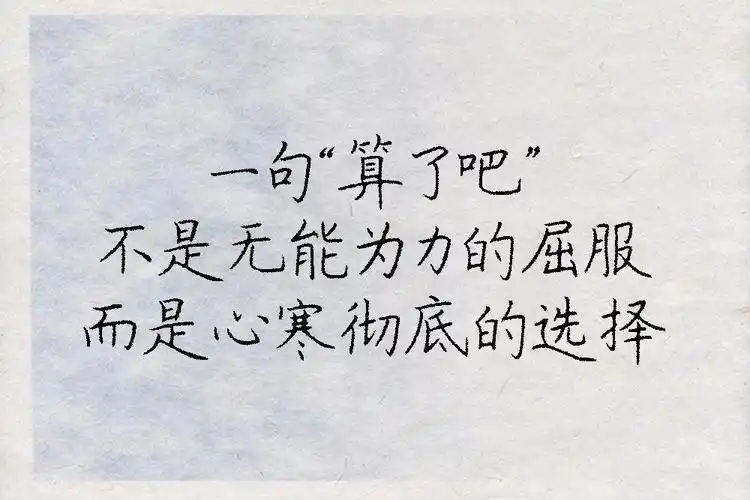 一句“算了吧”
不是无能为力的屈服
而是心寒彻底的选择